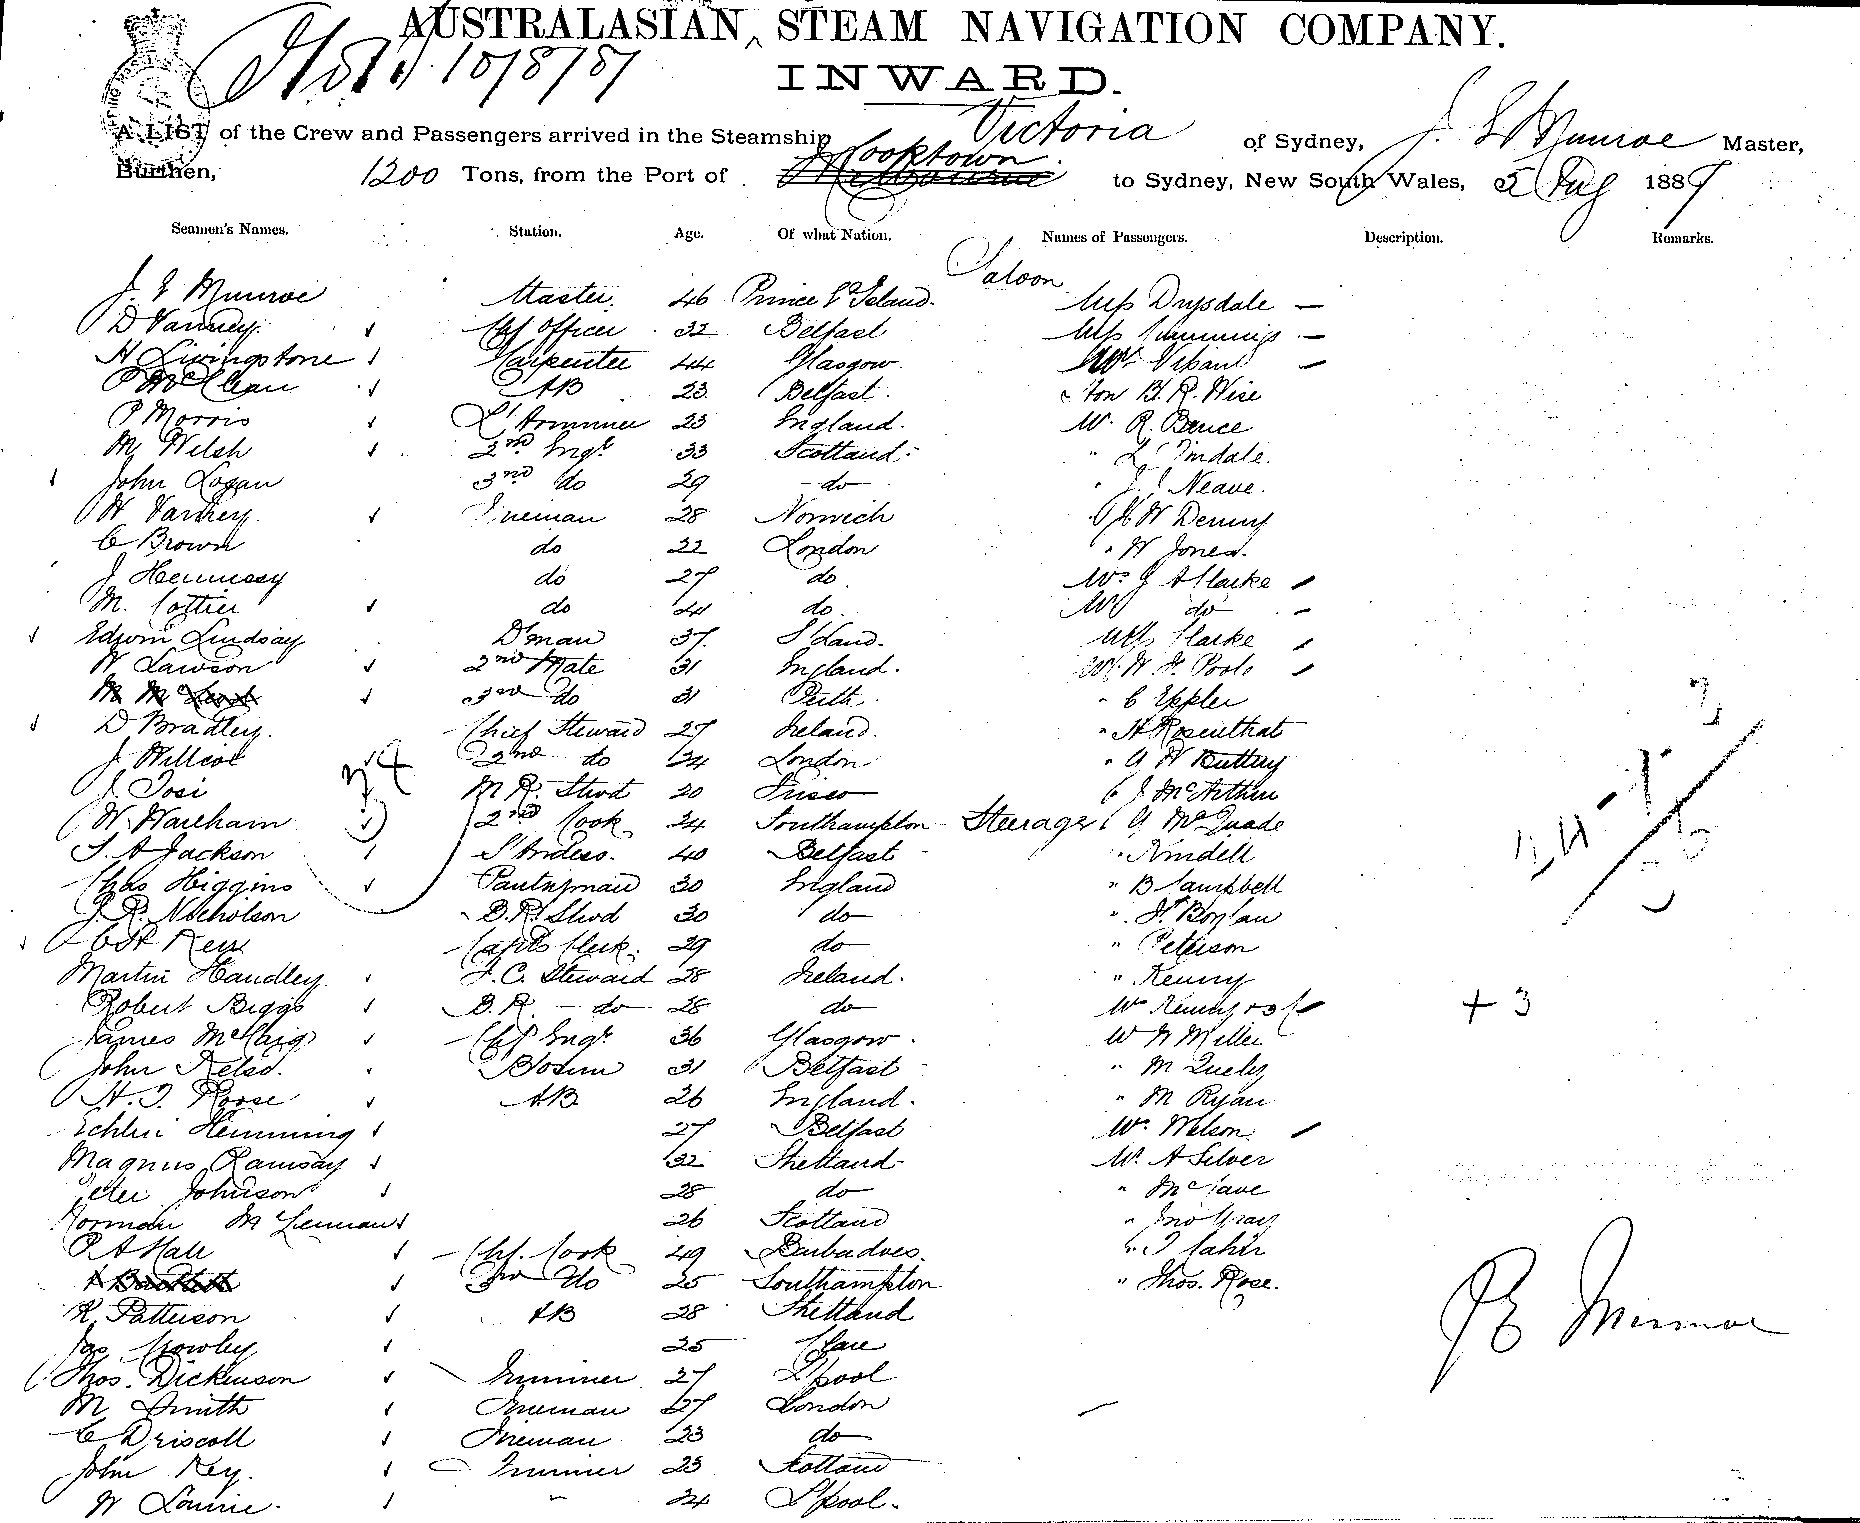 AUSTRALASIAN STEAM NAVIGATION COMPANY.
INWARD.
A LIST of the Crew and Passengers arrived in the Steamship Victoria of Sydney, J. E Munroe Master,
Burthen, 1200 Tons, from the Port of Cooktown to Sydney, New South Wales, 5 Aug 1887
Seamen's Names. Station. Age. Of what Nation. Names of Passengers. Description. Remarks.
Saloon
J. E Munroe Master. 46 Prince E Island. Miss Drysdale
D Varney Chf Officer 32 Belfast Miss Cummings
H Livingstone Carpenter 44 Glasgow
P McClean AB 23 Belfast Hon B. R. Wise
P Morris L Trimmer 23 England. Mr R. Bruce
M Welsh 2nd Engr 33 Scotland " Tindale.
John Logan 3rd do 29 do " Neave.
W Varney Fireman 28 Norwich " W Denny
C Brown do 22 London " W Jones.
J Hennessy do 27 do Mrs J A Clarke
M. Cottier do 24 do. do
Edwin Lindsay D'man 37 S'land. Miss Clarke
W Lawson 2nd Mate 31 England. W. H. Poole
3rd do 31 Perth " C Eppler
D Bradley. Chief Steward 27 Ireland. " H Rosenthal
J Willcox 2nd do 24 London " G W Buttrey
J. Tosi M R. Stwd 20 Frisco " J McArthur
W. Wareham 2nd Cook 24 Southampton Steerage G McQuade
S. A Jackson S'ardess. 40 Belfast " Kindell
Chas Higgins Pantryman 30 England " B Campbell
J. R. Nicholson B. R. Stwd 30 do " H. Boylan
Capts Clerk. 29 do " Peterson
Martin Handley F. C. Steward 28 Ireland. " Kenny
Robert Biggs B. R. do 28 do Mrs Kenny + 3 + 3
James McCaig Chf Engr 36 Glasgow. W Miller
John Kelso. Bosun 31 Belfast " M
H. J. Roose AB 26 England. " M Ryan
Echlin Hemming 27 Belfast Mrs Wilson.
Magnus Ramsay 32 Shetland Mr. A Silver
Peter Johnson 28 do
Norman McLennan 26 Scotland " Jno Gray
P. A Hall Chf. Cook 49 Barbadoes.
3rd do 25 Southampton " Thos. Rose.
R. Patterson AB 28 Shetland
Jas Crowley 25 Clare
Thos. Dickinson Trimmer 27 L'pool
M Smith Fireman 27 London
C Driscoll Fireman 23 do
John Key. Trimmer 23 Scotland
W Lourie. " 24 L'pool.
J E Munroe